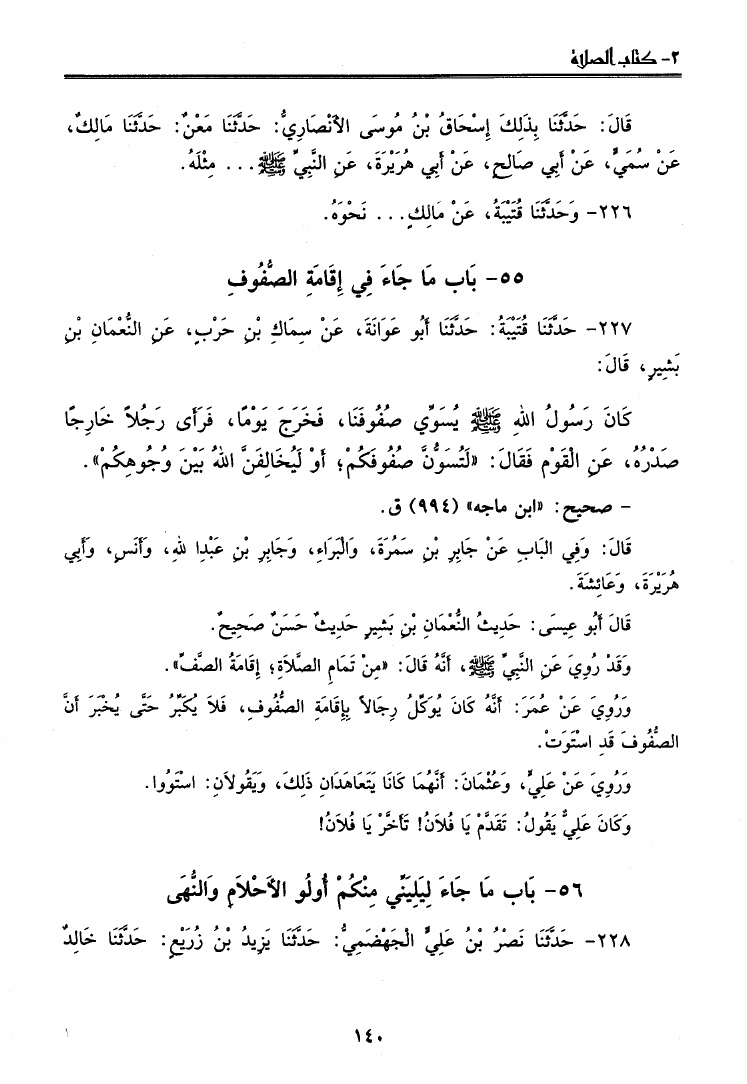 ٢- كتاب الصلاة
قَالَ: حَدَّثَنَا بِذَلِكَ إِسْحَاقُ بْنُ مُوسَى الأَنْصَارِيُّ: حَدَّثَنَا مَعْنٌ: حَدَّثَنَا مَالِكٌ،
عَنْ سُمَيٍّ، عَنْ أَبِي صَالِحٍ، عَنْ أَبِي هُرَيْرَةَ، عَنِ النَّبِيِّ ﷺ... مِثْلَهُ.
٢٢٦- وَحَدَّثَنَا قُتَيْبَةُ، عَنْ مَالِكٍ... نَحْوَهُ.
٥٥- بَاب مَا جَاءَ فِي إِقَامَةِ الصُّفُوفِ
٢٢٧- حَدَّثَنَا قُتَيْبَةُ: حَدَّثَنَا أَبُو عَوَانَةَ، عَنْ سِمَاكِ بْنِ حَرْبٍ، عَنِ النُّعْمَانِ بْنِ
بَشِيرٍ، قَالَ:
كَانَ رَسُولُ اللهِ ﷺ يُسَوِّي صُفُوفَنَا، فَخَرَجَ يَوْمًا، فَرَأَى رَجُلاً خَارِجًا
صَدْرُهُ، عَنِ الْقَوْمِ فَقَالَ: «لَتُسَوُّنَّ صُفُوفَكُمْ؛ أَوْ لَيُخَالِفَنَّ اللهُ بَيْنَ وُجُوهِكُمْ».
- صحيح: «ابن ماجه» (٩٩٤) ق.
قَالَ: وَفِي الْبَابِ عَنْ جَابِرِ بْنِ سَمُرَةَ، وَالْبَرَاءِ، وَجَابِرِ بْنِ عَبْدِا للهِ، وَأَنَسٍ، وَأَبِي
هُرَيْرَةَ، وَعَائِشَةَ.
قَالَ أَبُو عِيسَى: حَدِيثُ النُّعْمَانِ بْنِ بَشِيرٍ حَدِيثٌ حَسَنٌ صَحِيحٌ.
وَقَدْ رُوِيَ عَنِ النَّبِيِّ ﷺ، أَنَّهُ قَالَ: «مِنْ تَمَامِ الصَّلاَةِ؛ إِقَامَةُ الصَّفِّ».
وَرُوِيَ عَنْ عُمَرَ: أَنَّهُ كَانَ يُوَكِّلُ رِجَالاً بِإِقَامَةِ الصُّفُوفِ، فَلاَ يُكَبِّرُ حَتَّى يُخْبَرَ أَنَّ
الصُّفُوفَ قَدِ اسْتَوَتْ.
وَرُوِيَ عَنْ عَلِيٍّ، وَعُثْمَانَ: أَنَّهُمَا كَانَا يَتَعَاهَدَانِ ذَلِكَ، وَيَقُولاَنِ: اسْتَوُوا.
وَكَانَ عَلِيٌّ يَقُولُ: تَقَدَّمْ يَا فُلاَنُ! تَأَخَّرْ يَا فُلاَنُ!
٥٦- بَاب مَا جَاءَ لِيَلِيَنِّي مِنْكُمْ أُولُو الأَحْلاَمِ وَالنُّهَى
٢٢٨- حَدَّثَنَا نَصْرُ بْنُ عَلِيٍّ الْجَهْضَمِيُّ: حَدَّثَنَا يَزِيدُ بْنُ زُرَيْعٍ: حَدَّثَنَا خَالِدٌ
١٤٠